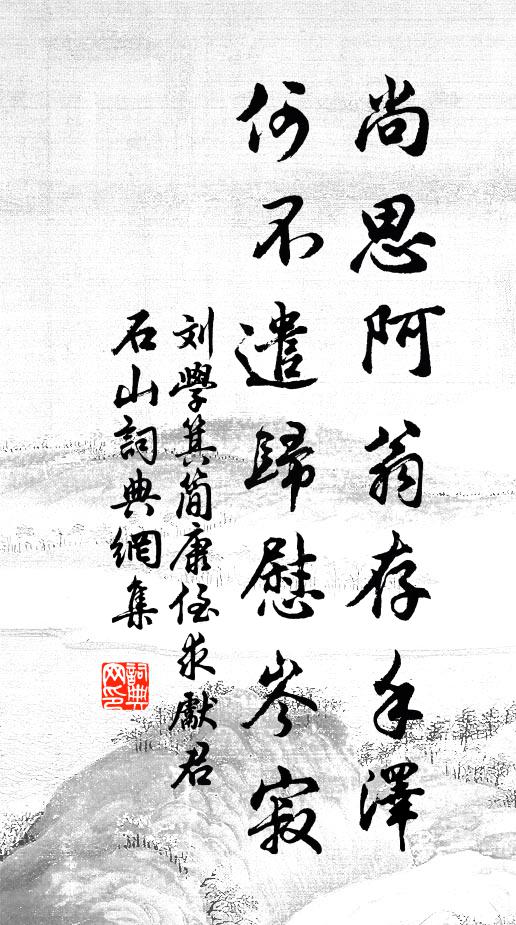 尚思阿翁存手澤
何不遣歸慰岑寂
刘學箕簡康侄求獻君
石山詞典網集
詞典网印